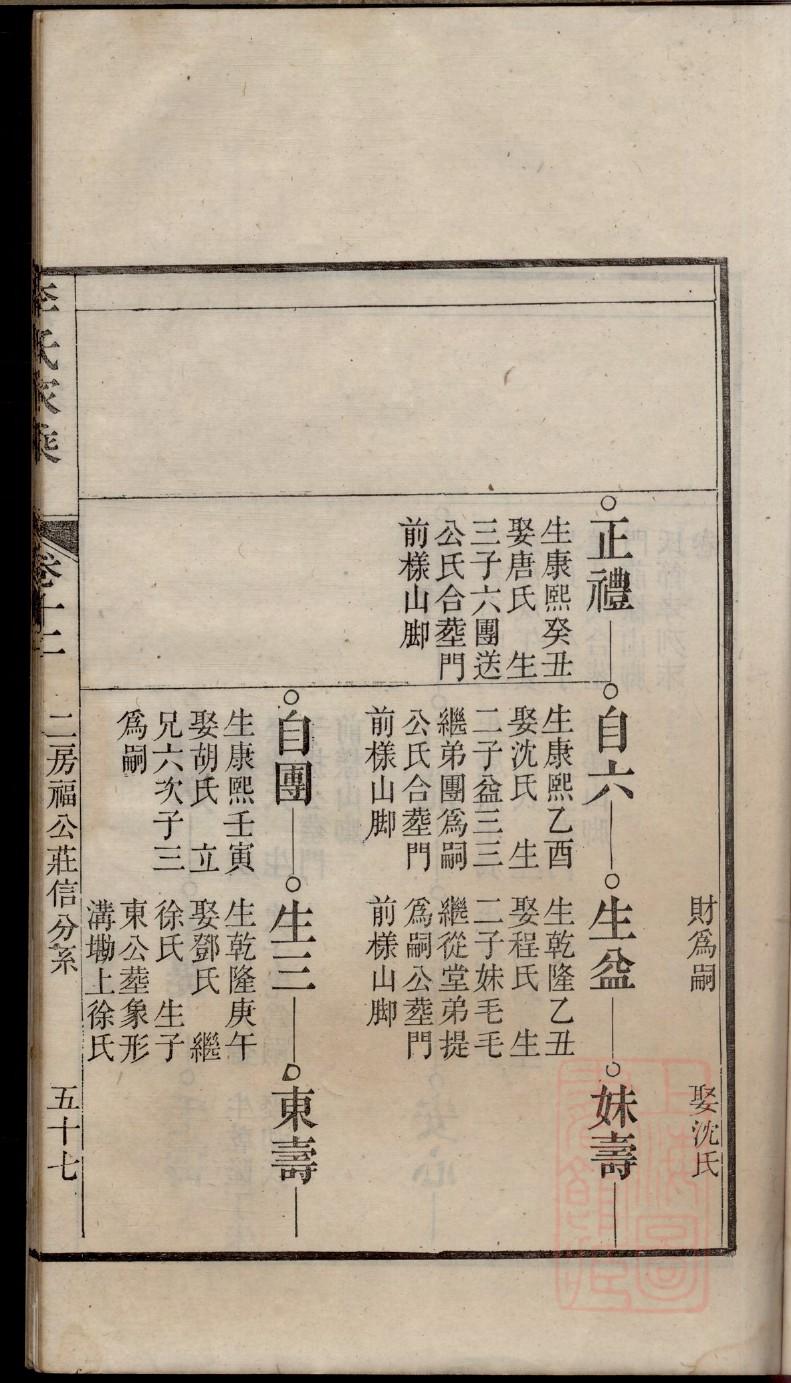 財爲嗣
娶沈氏
正禮
生康熙癸丑
娶唐氏 生
三子六團送
公氏合塟門
前樣山脚
自六
生康熙乙酉
娶沈氏 生
二子益三三
繼弟團爲嗣
公氏合塟門
前樣山脚
生益
生乾隆乙丑
娶程氏 生
二子妹毛毛
繼從堂弟提
爲嗣公塟門
前樣山脚
妹壽
自團
生康熙壬寅
娶胡氏 立
兄六次子三
爲嗣
生三
生乾隆庚午
娶鄧氏 繼
徐氏 生子
東公塟象形
溝塝上徐氏
東壽
李氏家乘
卷十二
二房福公莊信分系
五十七